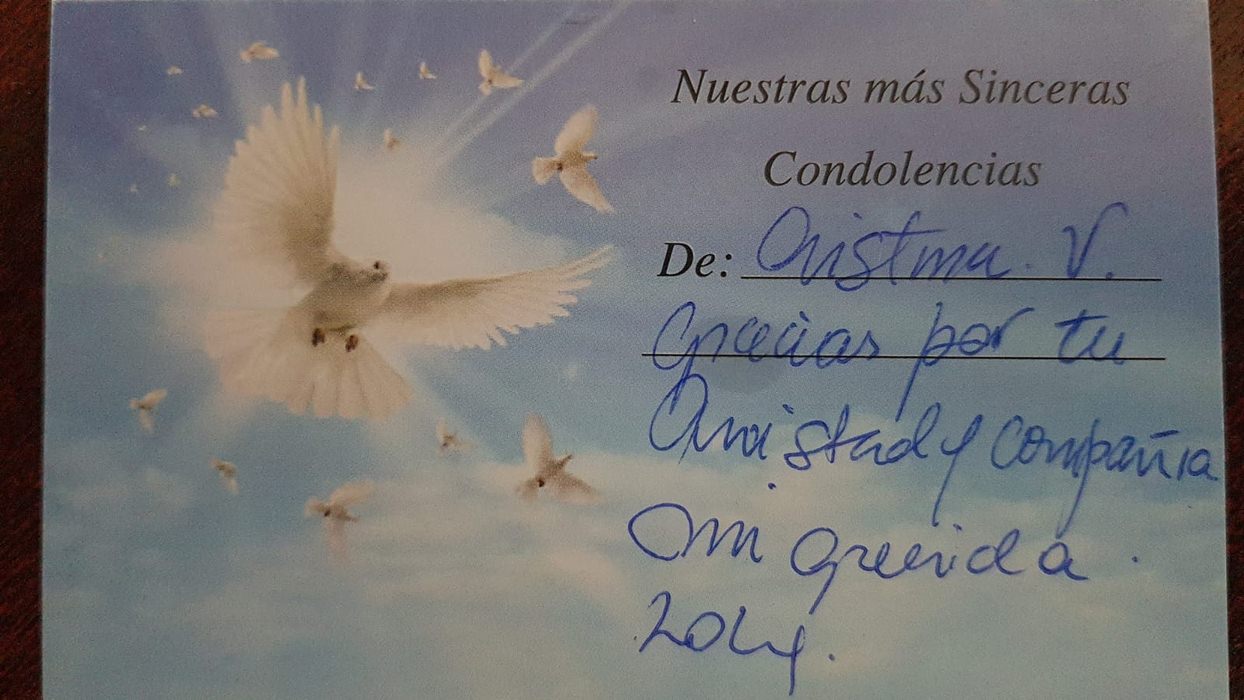 Nuestras más Sinceras
Condolencias
De: Cristina. V.
Gracias por tu
Amistad y compañia
mi querida.
Loly.